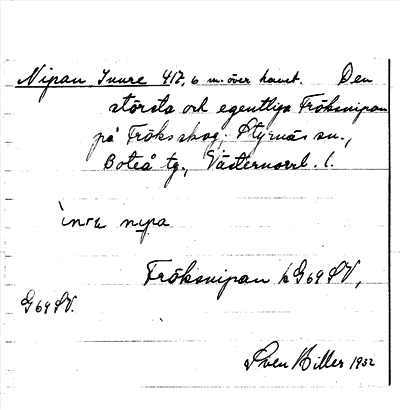 Nipan, Inure 417, 6 m. över havet. Den
största och egentliga Fröksnipan
på Fröks skog, Styrnäs sn.,
Boteå tg., Västernorrl. l.
ìnrɛ nipa
Fröksnipan k G69SV,
G69SV.
Sven Hiller 1932